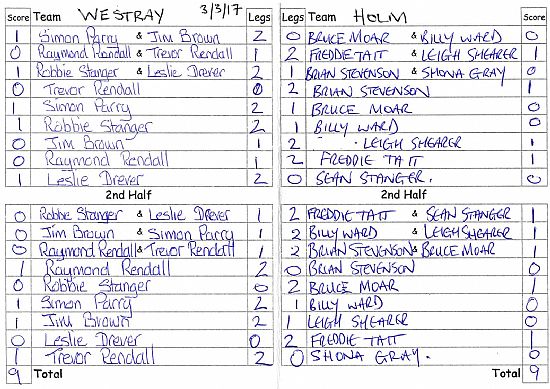 Score Team WESTRAY 3/3/17 Legs Legs Team HOLM Score
1 Simon Parry & Jim Brown 2 0 BRUCE MOAR & BILLY WARD 0
0 Raymond Rendall & Trevor Rendall 1 2 FREDDIE TAIT & LEIGH SHEARER 1
1 Robbie Stanger & Leslie Drever 2 1 BRIAN STEVENSON & SHONA GRAY 0
0 Trevor Rendall 0 2 BRIAN STEVENSON 1
1 Simon Parry 2 1 BRUCE MOAR 0
1 Robbie Stanger 2 1 BILLY WARD 0
0 Jim Brown 1 2 LEIGH SHEARER 1
0 Raymond Rendall 1 2 FREDDIE TAIT 1
1 Leslie Drever 2 0 SEAN STANGER. 0
2nd Half 2nd Half
0 Robbie Stanger & Leslie Drever 1 2 FREDDIE TAIT & SEAN STANGER 1
0 Jim Brown & Simon Parry 1 2 BILLY WARD & LEIGH SHEARER 1
0 Raymond Rendall & Trevor Rendall 1 2 BRIAN STEVENSON & BRUCE MOAR 1
1 Raymond Rendall 2 0 BRIAN STEVENSON 0
0 Robbie Stanger 0 2 BRUCE MOAR 1
1 Simon Parry 2 1 BILLY WARD 0
1 Jim Brown 2 1 LEIGH SHEARER 0
0 Leslie Drever 0 2 FREDDIE TAIT 1
1 Trevor Rendall 2 0 SHONA GRAY. 0
9 Total Total 9